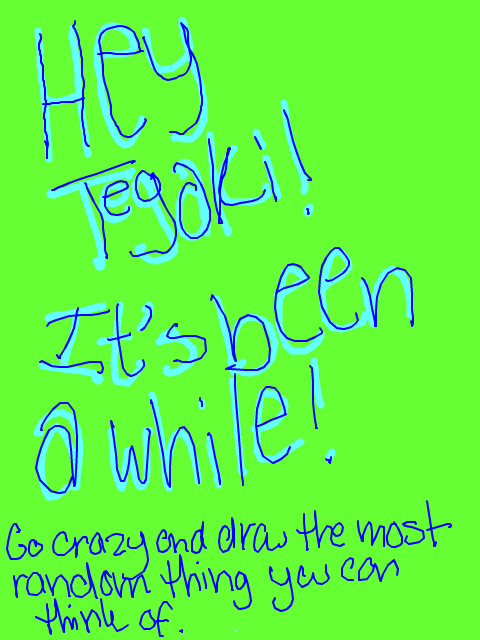 Hey
Tegaki!
It's been
a while!
Go crazy and draw the most
random thing you can
think of.